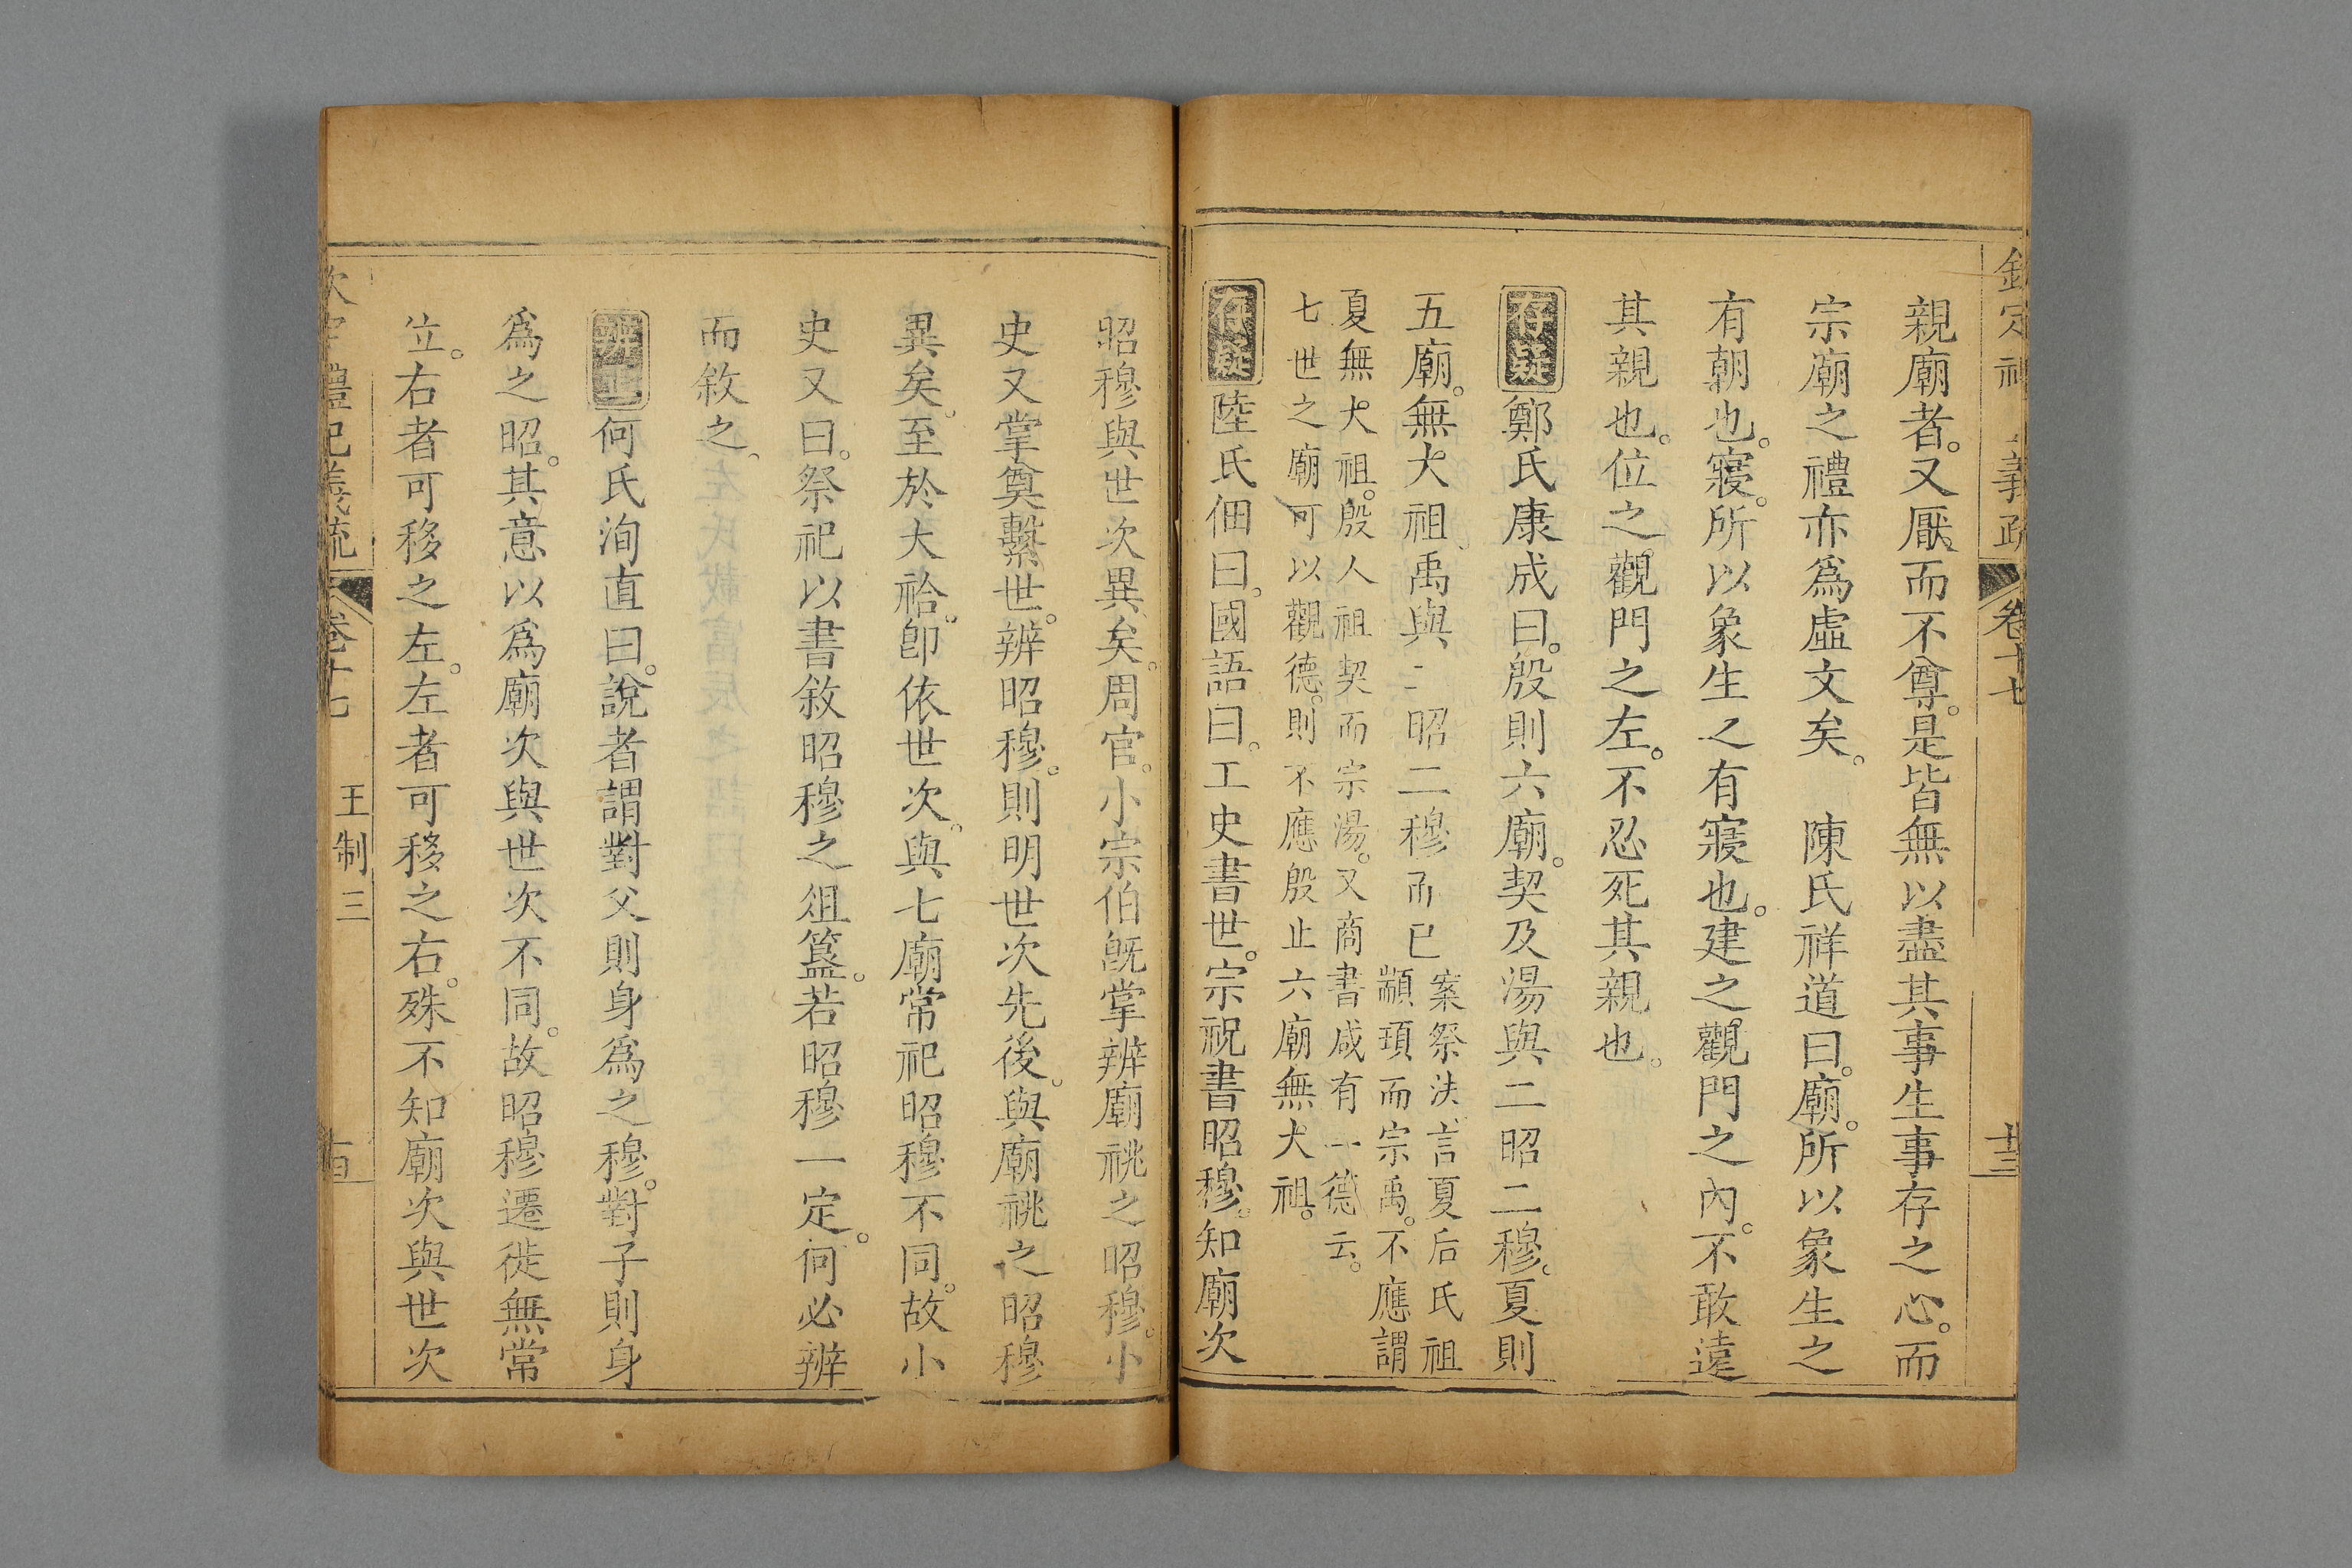 欽定禮 義疏 卷十七 十三
親廟者。又厭而不尊。是皆無以盡其事生事存之心。而
宗廟之禮亦爲虛文矣。　陳氏祥道曰。廟。所以象生之
有朝也。寢。所以象生之有寢也。建之觀門之內。不敢遠
其親也。位之觀門之左。不忍死其親也。
存疑鄭氏康成曰。殷則六廟。契及湯與二昭二穆。夏則
五廟。無大祖。禹與二昭二穆而已
案祭法言夏后氏祖
顓頊而宗禹。不應謂
夏無大祖。殷人祖契而宗湯。又商書咸有一德云。
七世之廟可以觀德。則不應殷止六廟無大祖。
存疑陸氏佃曰。國語曰。工史書世。宗祝書昭穆。知廟次
昭穆與世次異矣。周官。小宗伯旣掌辨廟祧之昭穆。小
史又掌奠繫世。辨昭穆。則明世次先後。與廟祧之昭穆
異矣。至於大祫。卽依世次。與七廟常祀昭穆不同。故小
史又曰。祭祀以書敘昭穆之俎簋。若昭穆一定。何必辨
而敘之。
辨正何氏洵直曰。說者謂對父則身爲之穆。對子則身
爲之昭。其意以爲廟次與世次不同。故昭穆遷徙無常
位。右者可移之左。左者可移之右。殊不知廟次與世次
欽定禮記義疏 卷十七 王制三